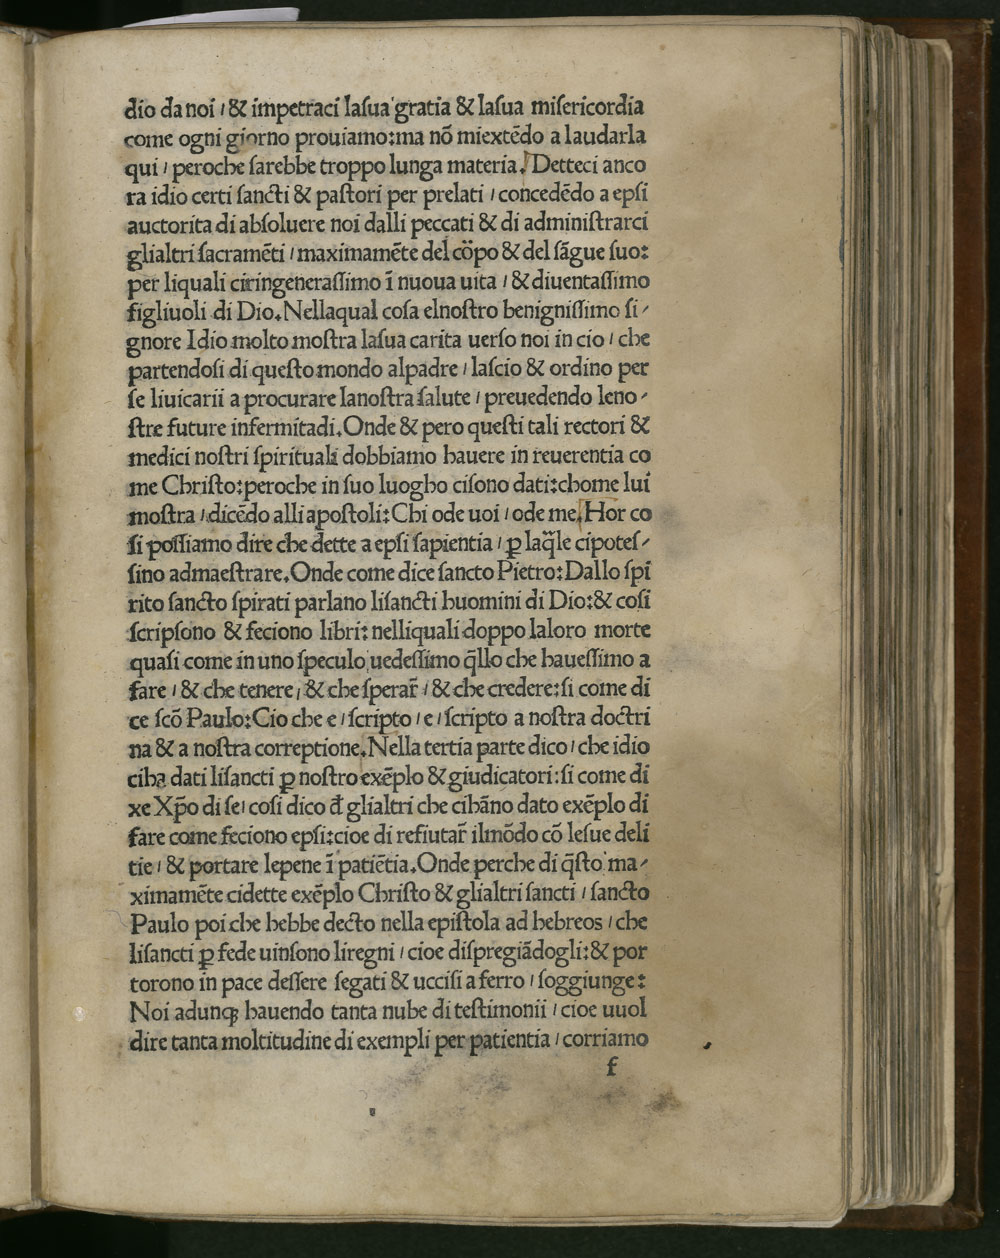 dio da noi / & impetraci laſua gratia & laſua miſericordia
come ogni giorno prouiamo:ma nō miextēdo a laudarla
qui / peroche ſarebbe troppo lunga materia. Detteci anco
ra idio certi ſancti & paſtori per prelati / concedēdo a epſi
auctorita di abſoluere noi dalli peccati & di adminiſtrarci
glialtri ſacramēti / maximamēte del cōpo & del ſāgue ſuo:
per liquali ciringeneraſſimo ī nuoua uita / & diuentaſſimo
figliuoli di Dio. Nellaqual coſa elnoſtro benigniſſimo ſi-
gnore Idio molto moſtra laſua carita uerſo noi in cio / che
partendoſi di queſto mondo alpadre / laſcio & ordino per
ſe liuicarii a procurare lanoſtra ſalute / preuedendo leno-
ſtre future infermitadi. Onde & pero queſti tali rectori &
medici noſtri ſpirituali dobbiamo hauere in reuerentia co
me Chriſto: peroche in ſuo luogho ciſono dati:chome lui
moſtra / dicēdo alli apoſtoli: Chi ode uoi / ode me. Hor co
ſi poſſiamo dire che dette a epſi ſapientia / ꝑ laq̄le cipoteſ-
ſino admaeſtrare. Onde come dice ſancto Pietro: Dallo ſpi
rito ſancto ſpirati parlano liſancti huomini di Dio:& coſi
ſcripſono & feciono libri: nelliquali doppo laloro morte
quaſi come in uno ſpeculo uedeſſimo q̄llo che haueſſimo a
fare / & che tenere / & che ſperar̄ / & che credere: ſi come di
ce ſcō Paulo: Cio che e / ſcripto / e / ſcripto a noſtra doctri
na & a noſtra correptione. Nella tertia parte dico / che idio
ciha dati liſancti ꝑ noſtro exēplo & giudicatori: ſi come di
xe Xp̄o di ſe / coſi dico đ glialtri che cihāno dato exēplo di
fare come feciono epſi:cioe di refiutar̄ ilmōdo cō leſue deli
tie / & portare lepene ī patiētia. Onde perche di q̄ſto ma-
ximamēte cidette exēplo Chriſto & glialtri ſancti / ſancto
Paulo poi che hebbe decto nella epiſtola ad hebreos / che
liſancti ꝑ fede uinſono liregni / cioe diſpregiādogli: & por
torono in pace deſſere ſegati & ucciſi a ferro / ſoggiunge:
Noi adunqꝫ hauendo tanta nube di teſtimonii / cioe uuol
dire tanta moltitudine di exempli per patientia / corriamo
f